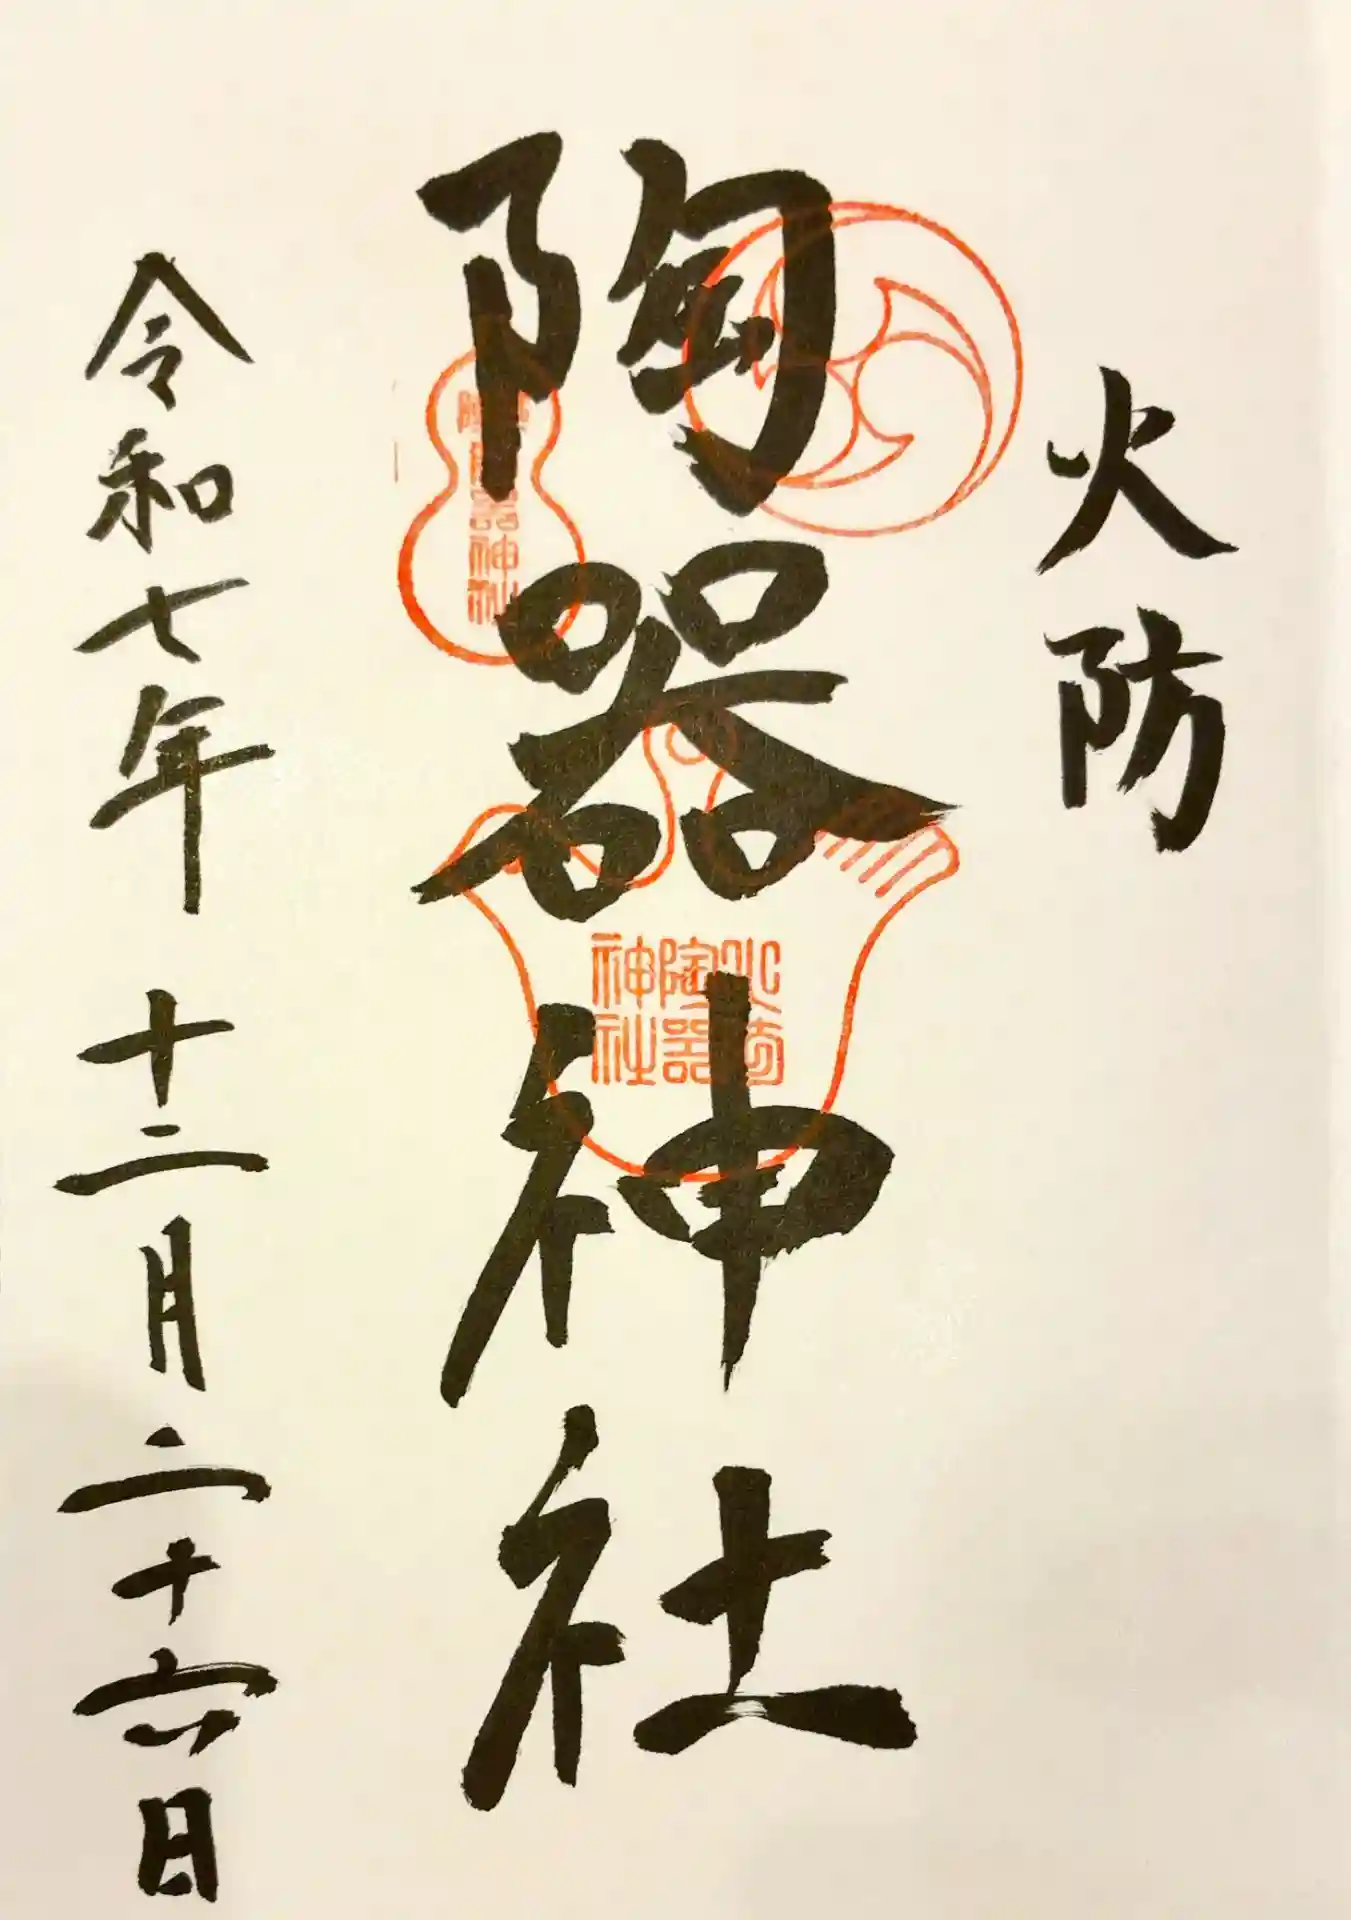 火防
陶器神社
令和七年 十二月二十六日
火防
陶器
神社
陶器神社